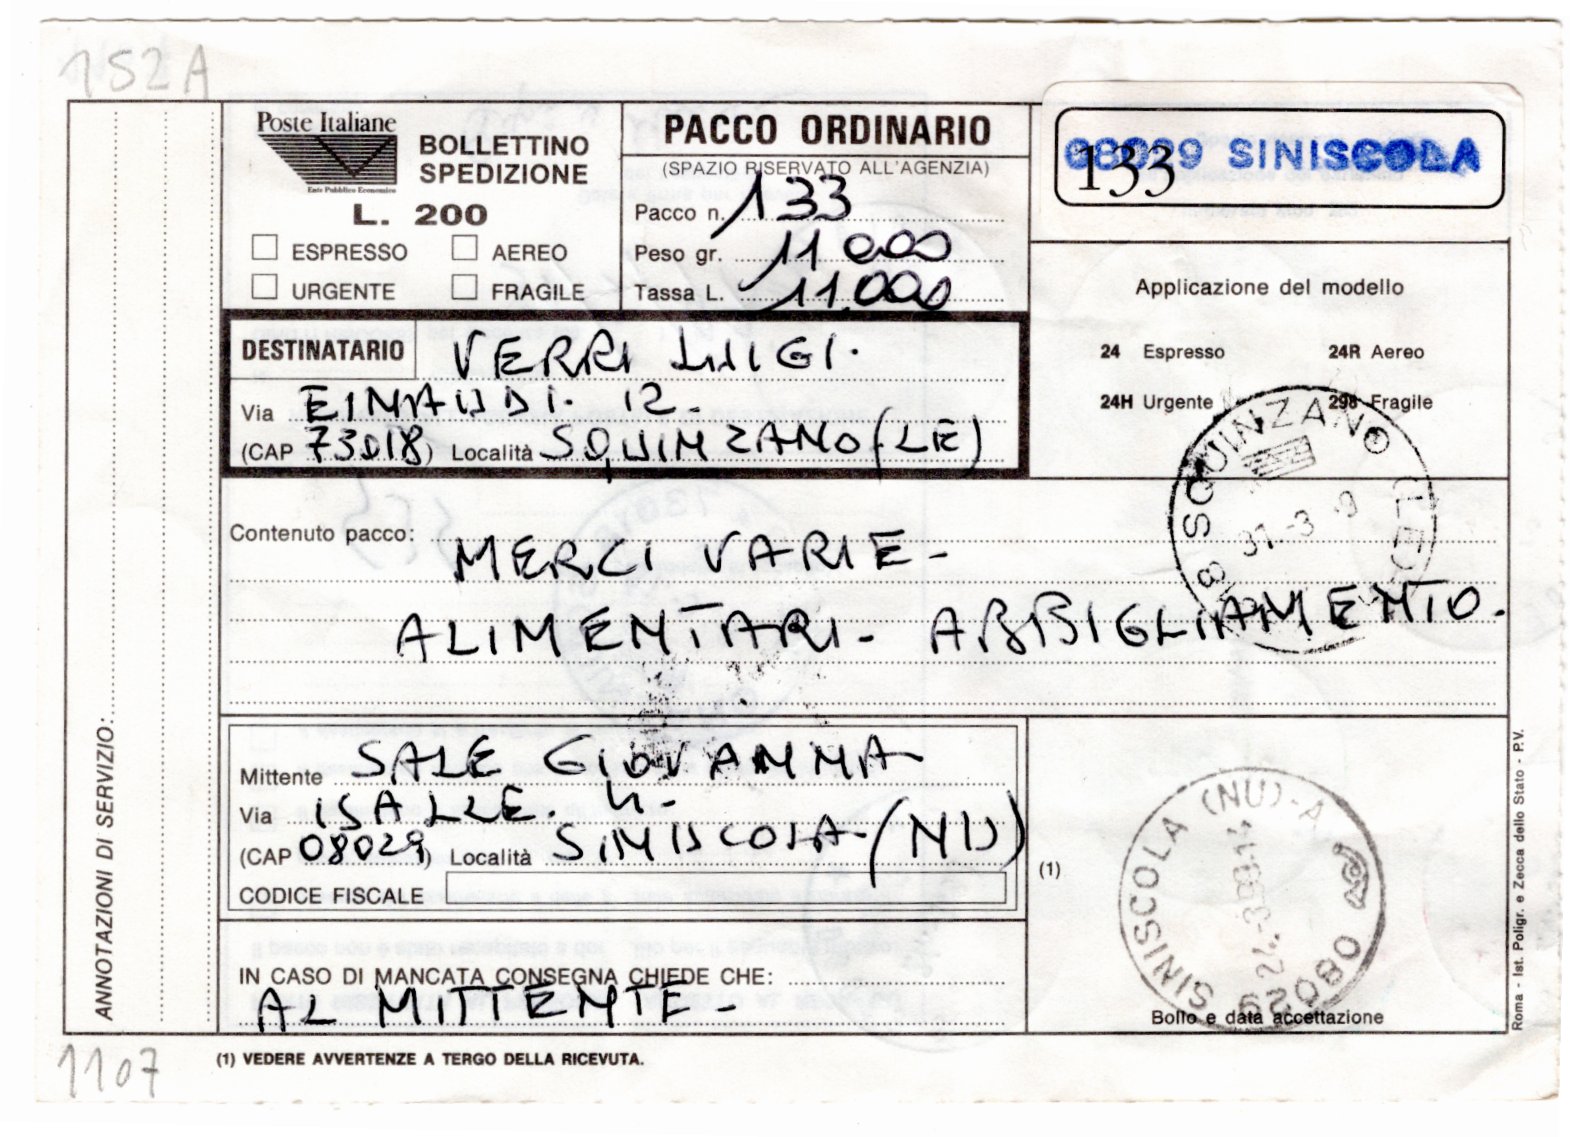 152A
Poste Italiane
Ente Pubblico Economico
BOLLETTINO
SPEDIZIONE
L. 200
ESPRESSO
AEREO
URGENTE
FRAGILE
PACCO ORDINARIO
(SPAZIO RISERVATO ALL'AGENZIA)
Pacco n. 133
Peso gr. 11 000
Tassa L. 11.000
08029 SINISCOLA
133
Applicazione del modello
24 Espresso
24R Aereo
24H Urgente
298 Fragile
DESTINATARIO VERRI LUIGI.
Via EINAUDI. 12-
(CAP 73018) Località SQUINZANO (LE)
SQUINZANO (LE)
31.-3
Contenuto pacco: MERCI VARIE-
ALIMENTARI- ABBIGLIAMENTO.
Mittente SALE GIOVANNA
Via ISALLE. 4-
(CAP 08029) Località SINISCOLA-(NU)
CODICE FISCALE
(1)
SINISCOLA (NU)-A
24.-3-99.14
08029
Bollo e data accettazione
IN CASO DI MANCATA CONSEGNA CHIEDE CHE:
AL MITTENTE-
ANNOTAZIONI DI SERVIZIO:
Roma - Ist. Poligr. e Zecca dello Stato - P.V.
(1) VEDERE AVVERTENZE A TERGO DELLA RICEVUTA.
1107